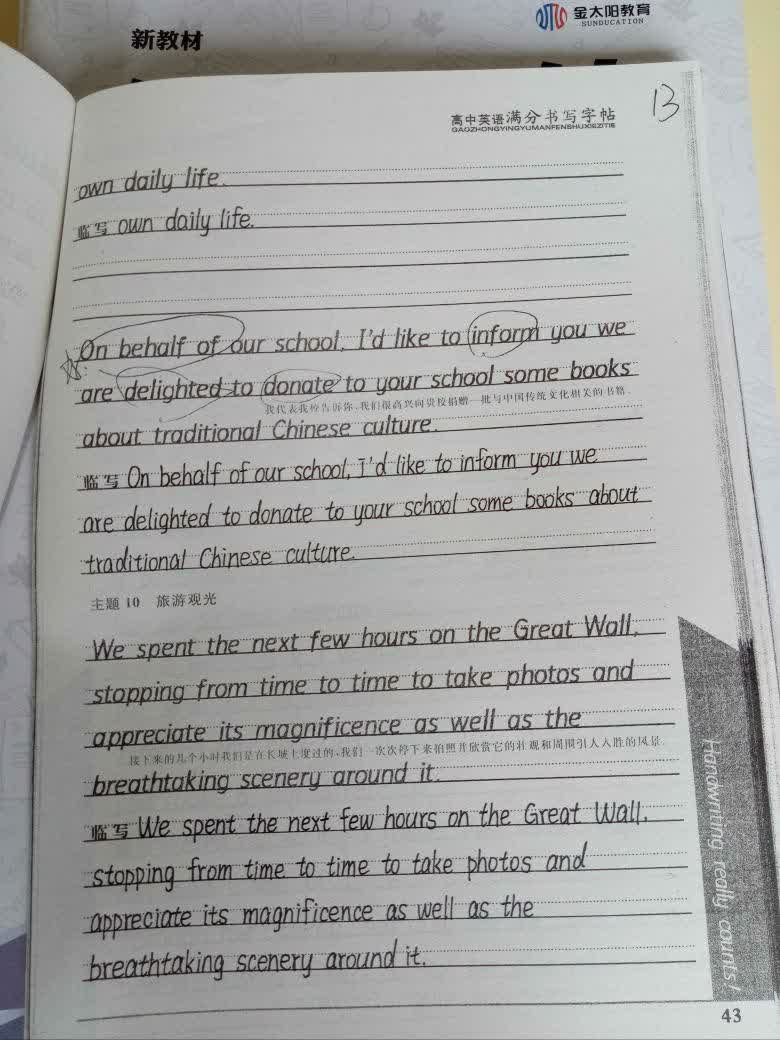 金太阳教育
SUNDUCATION
新教材
13
高中英语满分书写字帖
GAOZHONGYINGYUMANFENSHUXIEZITIE
own daily life.
临写 own daily life.
On behalf of our school, I'd like to inform you we
are delighted to donate to your school some books
我代表我校告诉你,我们很高兴向贵校捐赠一批与中国传统文化相关的书籍.
about traditional Chinese culture.
临写 On behalf of our school, I'd like to inform you we
are delighted to donate to your school some books about
traditional Chinese culture.
主题 10 旅游观光
We spent the next few hours on the Great Wall,
stopping from time to time to take photos and
appreciate its magnificence as well as the
接下来的几个小时我们是在长城上度过的,我们一次次停下来拍照并欣赏它的壮观和周围引人入胜的风景.
breathtaking scenery around it.
临写 We spent the next few hours on the Great Wall,
stopping from time to time to take photos and
appreciate its magnificence as well as the
breathtaking scenery around it.
Handwriting really counts!
43